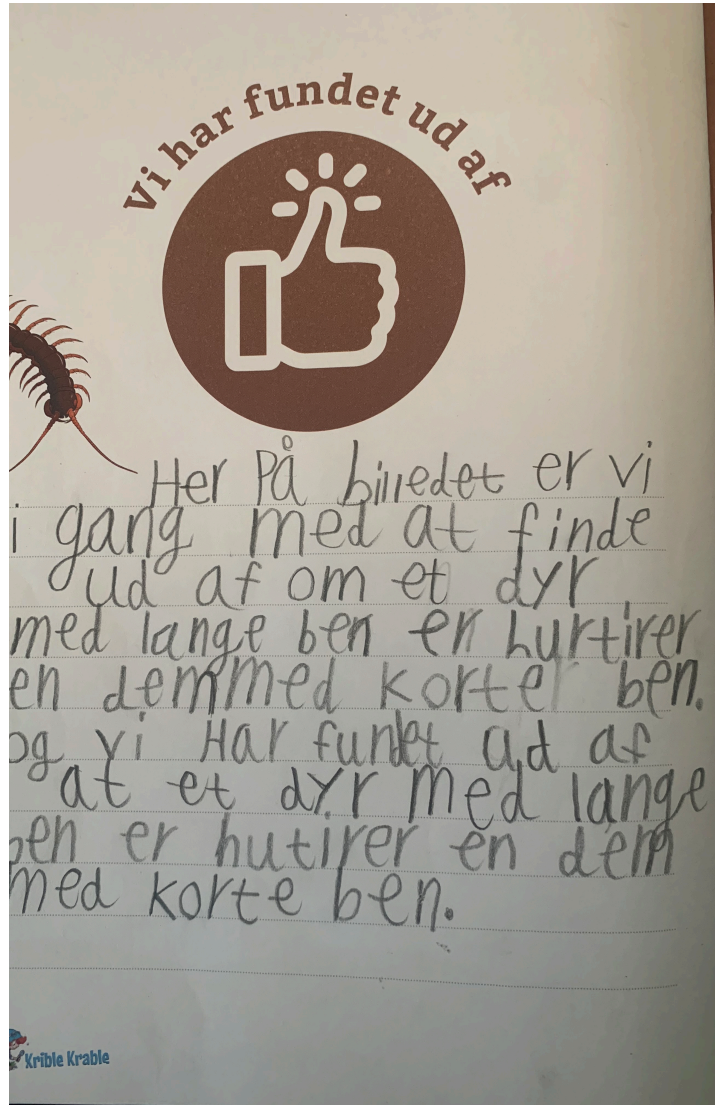 Vi har fundet ud af
Her På billedet er vi
i gang med at finde
ud af om et dyr
med lange ben er hurtirer
en dem med korte ben.
og vi Har fundet ud af
at et dyr med lange
ben er hutirer en dem
med korte ben.
Krible Krable